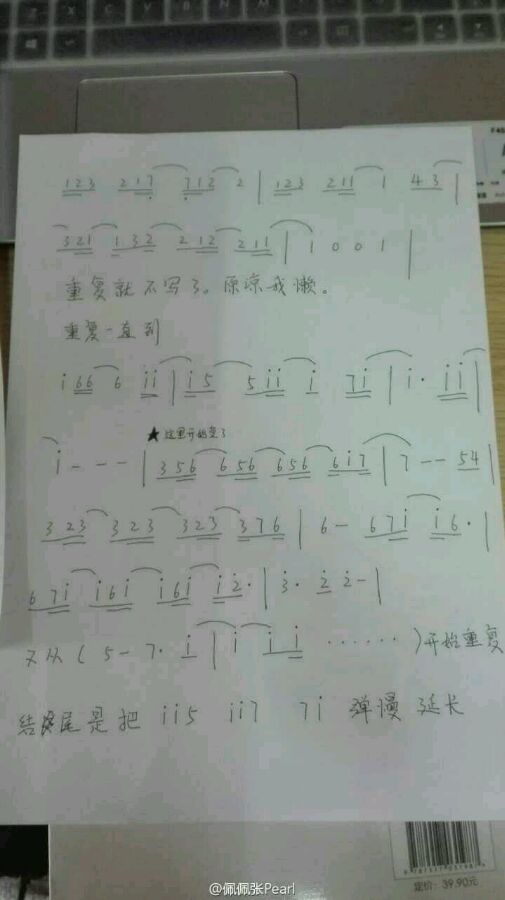 123 217 712 2 | 123 211 1 43 |
321 132 212 211 | 1 0 0 1 |
重复就不写了。原谅我懒。
重复一直到
i 66 6 ii | i5 5ii i 7i | i· ii |
i - - - | ★这里开始变了
356 656 656 6i7 | 7 - - 54 |
323 323 323 376 | 6 - 67i i6· |
67i i6i i6i i2· | 3· 2 2 - |
又从 ( 5 - 7· i | i i i ······ ) 开始重复
结尾是把 ii5 ii7 7i 弹慢 延长
定价:39.90元
@佩佩张Pearl